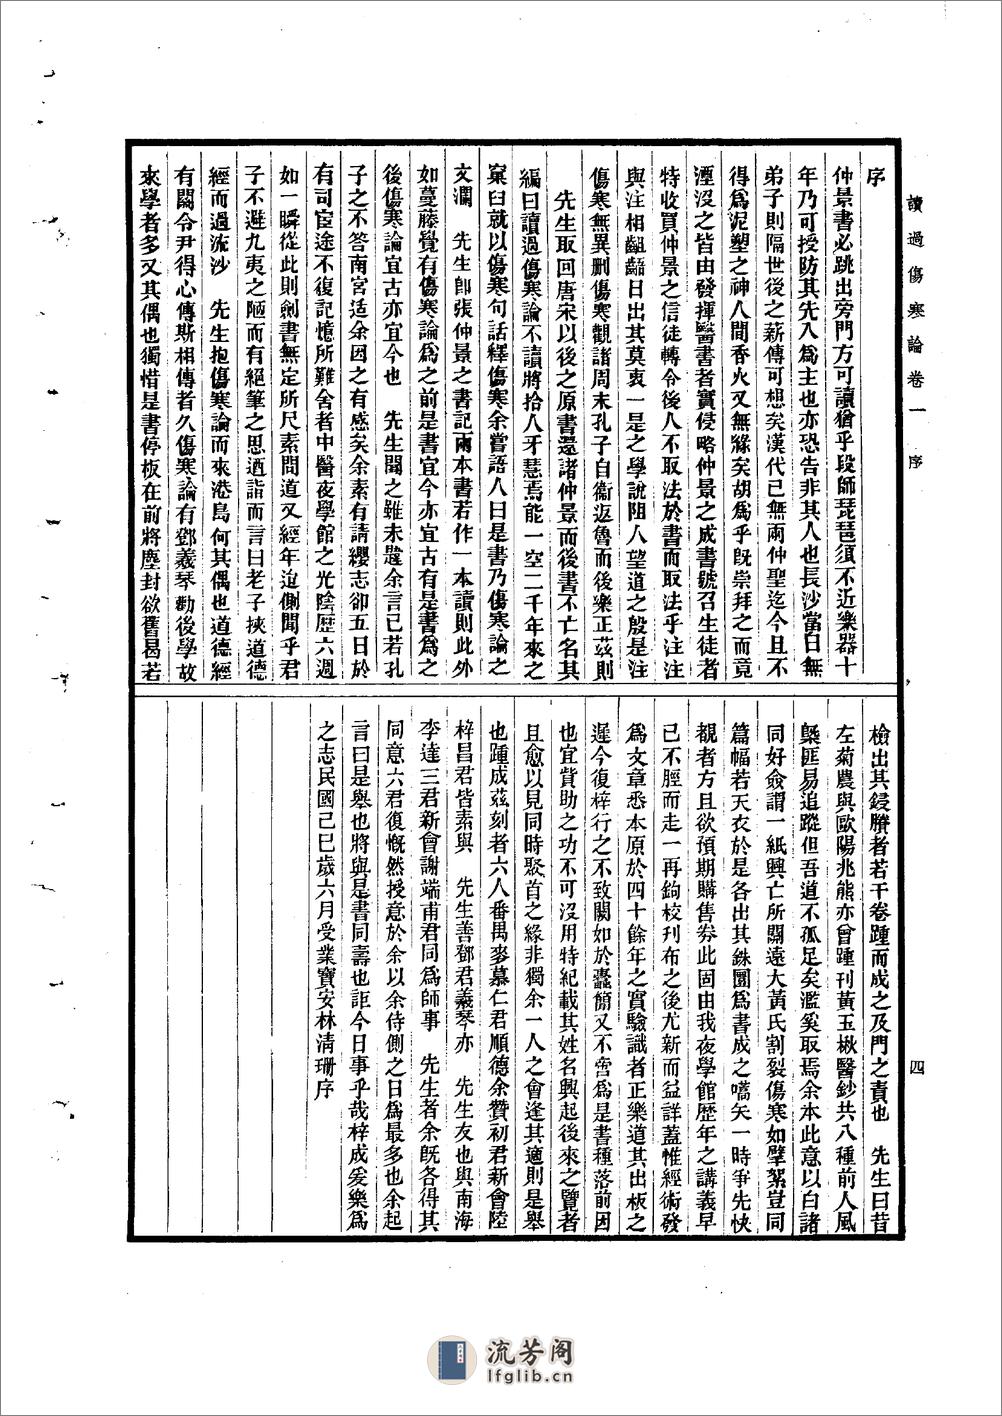 讀過傷寒論卷一 序
四
序
仲景書必跳出旁門方可讀猶乎段師琵琶須不近樂器十
年乃可授防其先入爲主也亦恐告非其人也長沙當日無
弟子則隔世後之薪傳可想矣漢代已無兩仲聖迄今且不
得爲泥塑之神人間香火又無緣矣胡爲乎既崇拜之而竟
湮沒之皆由發揮醫書者實侵略仲景之成書號召生徒者
特收買仲景之信徒轉令後人不取法於書而取法乎注注
與注相齟齬日出其莫衷一是之學說阻人望道之殷是注
傷寒無異删傷寒觀諸周末孔子自衞返魯而後樂正茲則
先生取回唐宋以後之原書還諸仲景而後書不亡名其
編曰讀過傷寒論不讀將拾人牙慧焉能一空二千年來之
窠臼就以傷寒句話釋傷寒余嘗語人曰是書乃傷寒論之
文瀾 先生卽張仲景之書記兩本書若作一本讀則此外
如蔓藤覺有傷寒論爲之前是書宜今亦宜古有是書爲之
後傷寒論宜古亦宜今也 先生聞之雖未遑余言已若孔
子之不答南宮适余因之有感矣余素有請纓志卻五日於
有司宦途不復記憶所難舍者中醫夜學館之光陰歷六週
如一瞬從此則劍書無定所尺素問道又經年遑側聞乎君
子不避九夷之陋而有絕筆之思迺詣而言曰老子挾道德
經而過流沙 先生抱傷寒論而來港島何其偶也道德經
有關令尹得心傳斯相傳者久傷寒論有鄧羲琴勸後學故
來學者多又其偶也獨惜是書停板在前將塵封欲舊曷若
檢出其錽賸者若干卷踵而成之及門之責也 先生曰昔
左菊農與歐陽兆熊亦曾踵刊黃玉楸醫鈔共八種前人風
槼匪易追蹤但吾道不孤足矣濫奚取焉余本此意以白諸
同好僉謂一紙興亡所關遠大黃氏割裂傷寒如擘絮豈同
篇幅若天衣於是各出其銖團爲書成之嚆矢一時爭先快
覩者方且欲預期購售劵此固由我夜學館歷年之講義早
已不脛而走一再鉤校刊布之後尤新而益詳蓋惟經術發
爲文章悉本原於四十餘年之實驗識者正樂道其出板之
遲今復梓行之不致闕如於蠹簡又不啻爲是書種落前因
也宜贊助之功不可沒用特紀載其姓名興起後來之覽者
且愈以見同時聚首之緣非獨余一人之會逢其適則是舉
也踵成茲刻者六人番禺麥慕仁君順德余贊初君新會陸
梓昌君皆素與 先生善鄧君羲琴亦 先生友也與南海
李達三君新會謝端甫君同爲師事 先生者余既各得其
同意六君復慨然授意於余以余侍側之日爲最多也余起
言曰是舉也將與是書同壽也詎今日事乎哉梓成爰樂爲
之志民國己巳歲六月受業寶安林清珊序
流芳阁
lfglib.cn